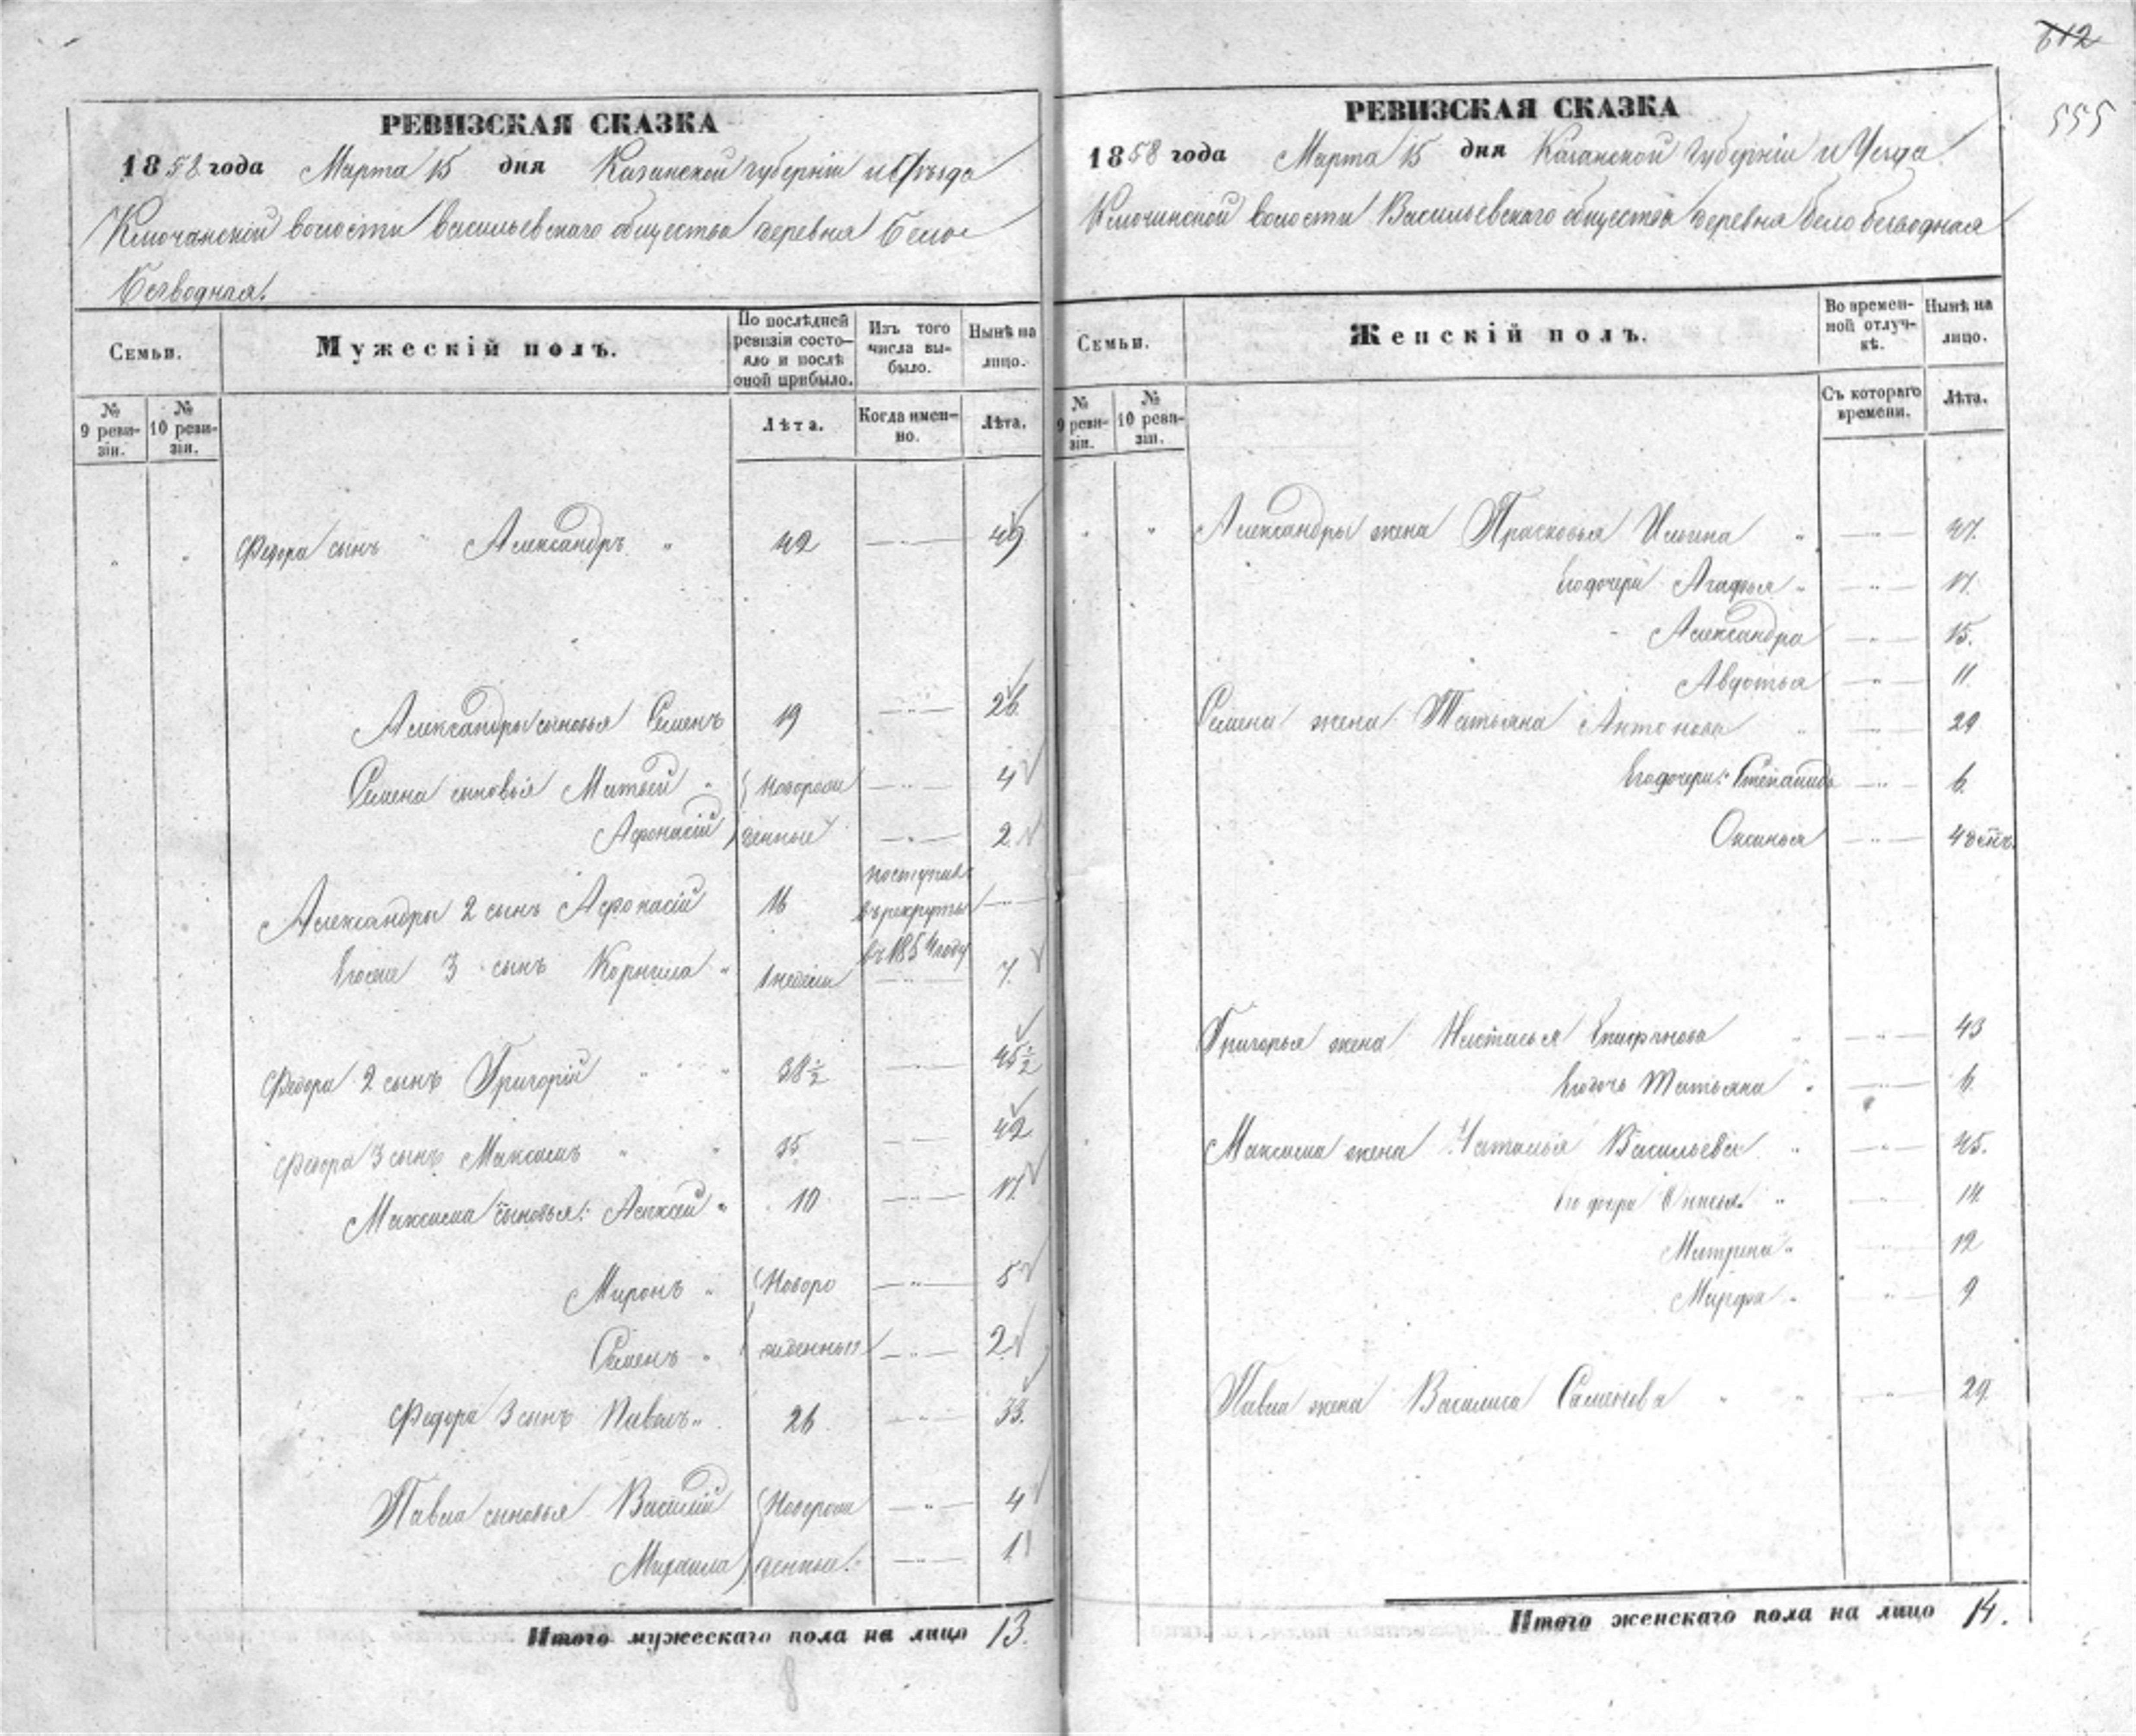 612
555
РЕВИЗСКАЯ СКАЗКА
1858 года Марта 15 дня Казанской губернии и Уѣзда
Ключинской волости Васильевского общества деревня Бело
Безводная.
Семьи.
Мужескій полъ.
По послѣдней ревизіи состояло и послѣ оной прибыло.
Изъ того числа выбыло.
Нынѣ на лицо.
№ 9 ревизіи.
№ 10 ревизіи.
Лѣта.
Когда именно.
Лѣта.
Федора сынъ Александръ 42 49
Александры сыновья Семенъ 19 26
Семена сыновья Матвей Новорож 4
Афонасій денные 2
Александры 2 сынъ Афонасій 16 поступилъ въ рекруты въ 1854 году
Егоже 3 сынъ Корнила 1 недели 7
Федора 2 сынъ Григорій 38½ 45½
Федора 3 сынъ Максимъ 35 42
Максима сыновья: Алексей 10 17
Миронъ Новоро 5
Семенъ жденныи 2
Федора 3 сынъ Павелъ 26 33.
Павла сыновья Василій Новорож 4
Михаила денные 1
Итого мужескаго пола на лицо 13.
8
РЕВИЗСКАЯ СКАЗКА
1858 года Марта 15 дня Казанской губерніи и Уезда
Ключинской волости Васильевского общества деревня бело безводная
Семьи.
Женскій полъ.
Во временной отлучкѣ.
Нынѣ на лицо.
№ 9 ревизіи.
№ 10 ревизіи.
Съ котораго времени.
Лѣта.
Александры жена Прасковья Ильина 47.
Его дочери Агафья 17.
Александра 15.
Авдотья 11.
Семена жена Татьяна Антонова 29
Его дочери: Степанида 6
Оксинья 4 день.
Григорья жена Настасья Епифанова 43
Его дочь Татьяна 6
Максима жена Наталья Васильева 45.
Его дочери 14
Матрена 12
Марфа 9
Павла жена Василиса Семенова 29.
Итого женскаго пола на лицо 14.